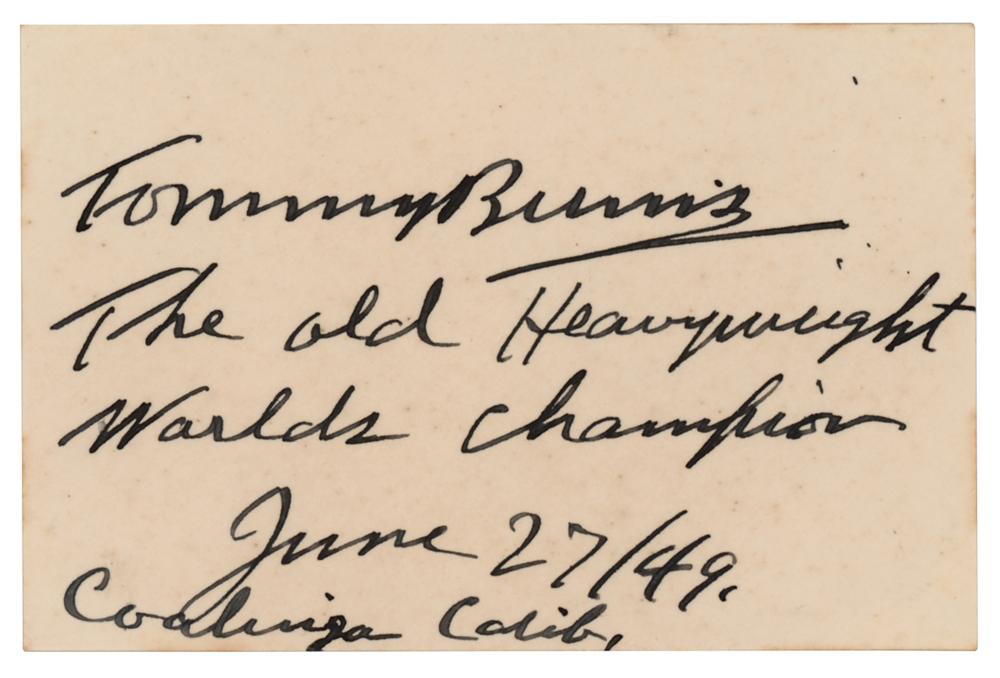 Tommy Burns
The old Heavyweight
Worlds Champion
June 27/49.
Coalinga Calif,